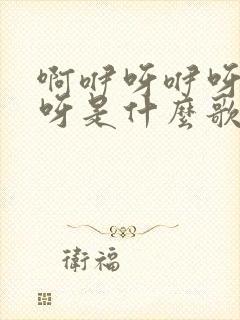 啊咿呀咿呀
呀是什麼歌
衛福